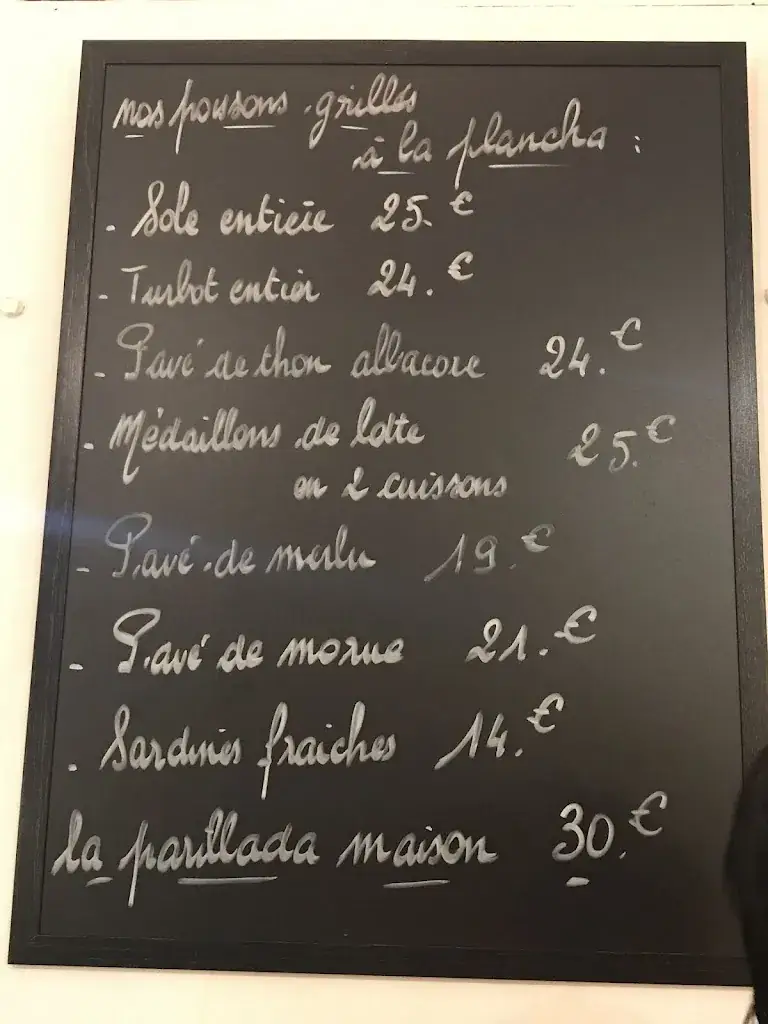 nos poissons grillés
à la plancha :
- Sole entière 25.€
- Turbot entier 24.€
- Pavé de thon albacore 24.€
- Médaillons de lotte 25.€
en 2 cuissons
- Pavé de merlu 19.€
- Pavé de morue 21.€
- Sardines fraîches 14.€
la parillada maison 30.€